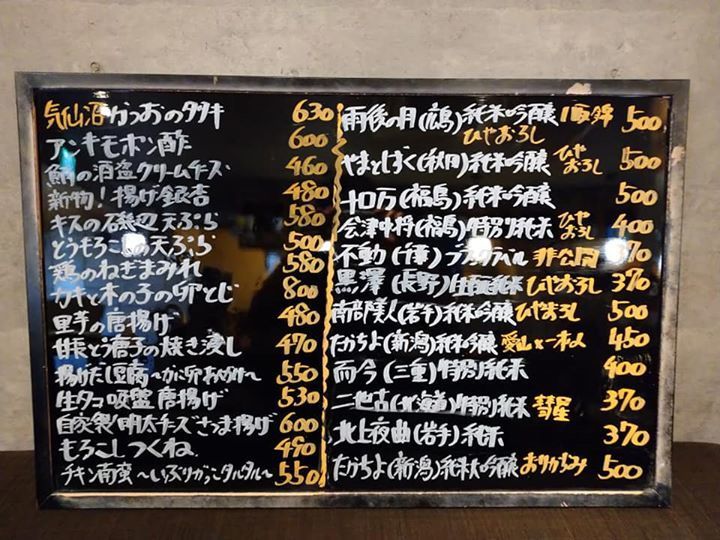 気仙沼かつおのタタキ 630
アンキモポン酢 600
鯛の酒盗クリームチーズ 460
新物!揚げ銀杏 480
キスの磯辺天ぷら 580
とうもろこしの天ぷら 500
鶏のねぎまみれ 580
カキと木の子の卵とじ 800
里芋の唐揚げ 480
甘長とう唐子の焼き浸し 470
揚げだし豆腐〜かに卵あんかけ〜 550
生タコ吸盤唐揚げ 530
自家製!明太チーズさつま揚げ 600
もろこしつくね 490
チキン南蛮〜いぶりがっこタルタル〜 550
雨後の月(広島)純米吟醸 ひやおろし 500
やまとしずく(秋田)純米吟醸 ひやおろし 500
十口万(福島)純米吟醸 500
会津中将(福島)特別純米 ひやおろし 400
不動(千葉) ブラックラベル 非公開
黒澤(長野)生酛純米 ひやおろし 370
南部美人(岩手)純米吟醸 ひやおろし 500
たかちよ(新潟)純米吟醸 愛山 450
而今(三重)特別純米 400
二世古(北海道)特別純米 彗星 370
北上夜曲(岩手)純米 370
たかちよ(新潟)純米大吟醸 おりがらみ 500